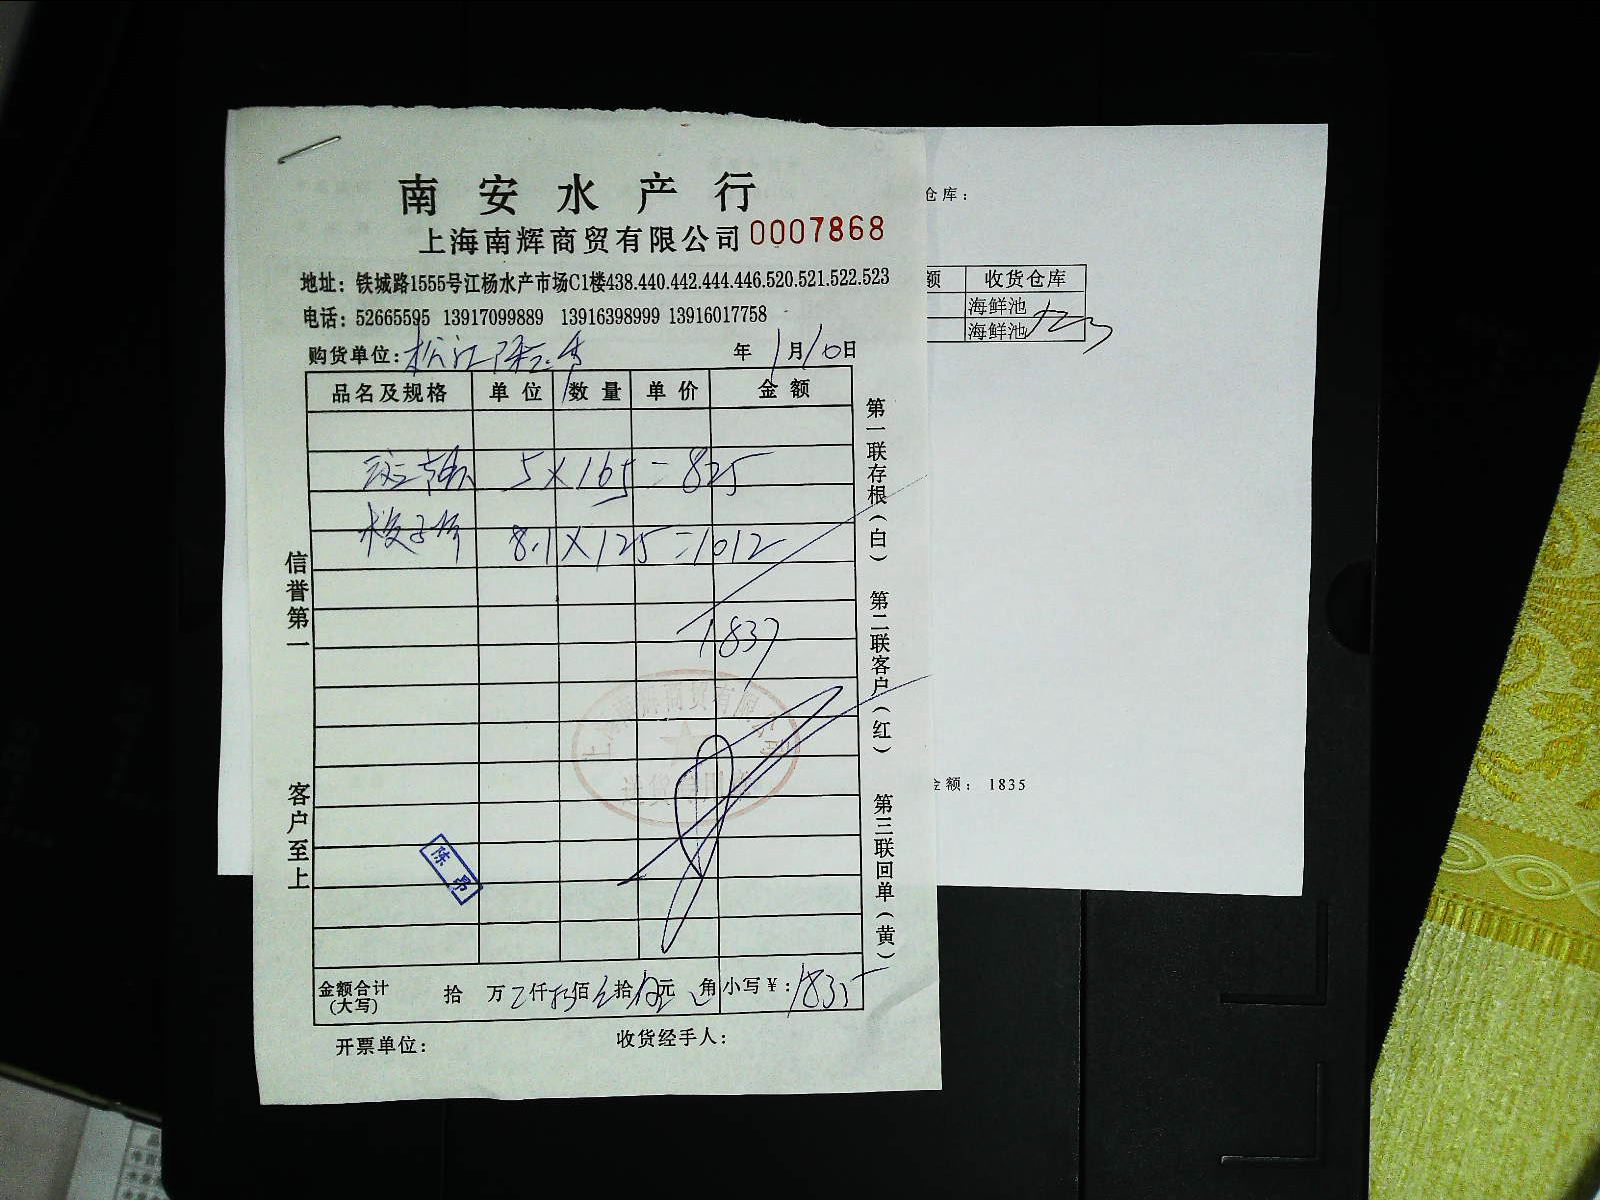 南安水产行
上海南辉商贸有限公司 0007868
地址：铁城路1555号江杨水产市场C1楼438.440.442.444.446.520.521.522.523
电话：52665595 13917099889 13916398999 13916017758
购货单位：松江 年1月10日
品名及规格 单位 数量 单价 金额
5×165=825
8.1×125=1012
1837
金额合计(大写) 拾 万 仟 佰 拾 元 角 小写￥：1835
开票单位： 收货经手人：
信誉第一
客户至上
第一联存根(白)
第二联客户(红)
第三联回单(黄)
商贸有限公司
陈昂
仓库：
额 收货仓库
海鲜池
海鲜池
金额：1835